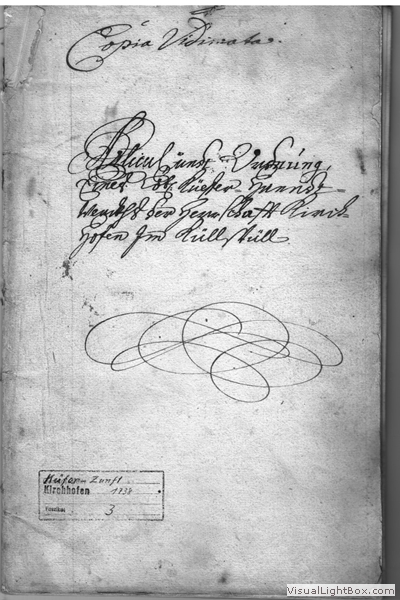 Copia Vidimata.
Articul und Ordnung,
Eines Ehr. Küeffer-Handt-
Wercks der Herrschafft Kirch-
Hofen Im
Küfer-Zunft
Kirchhofen 1738
Faszikel 3
VisualLightBox.com